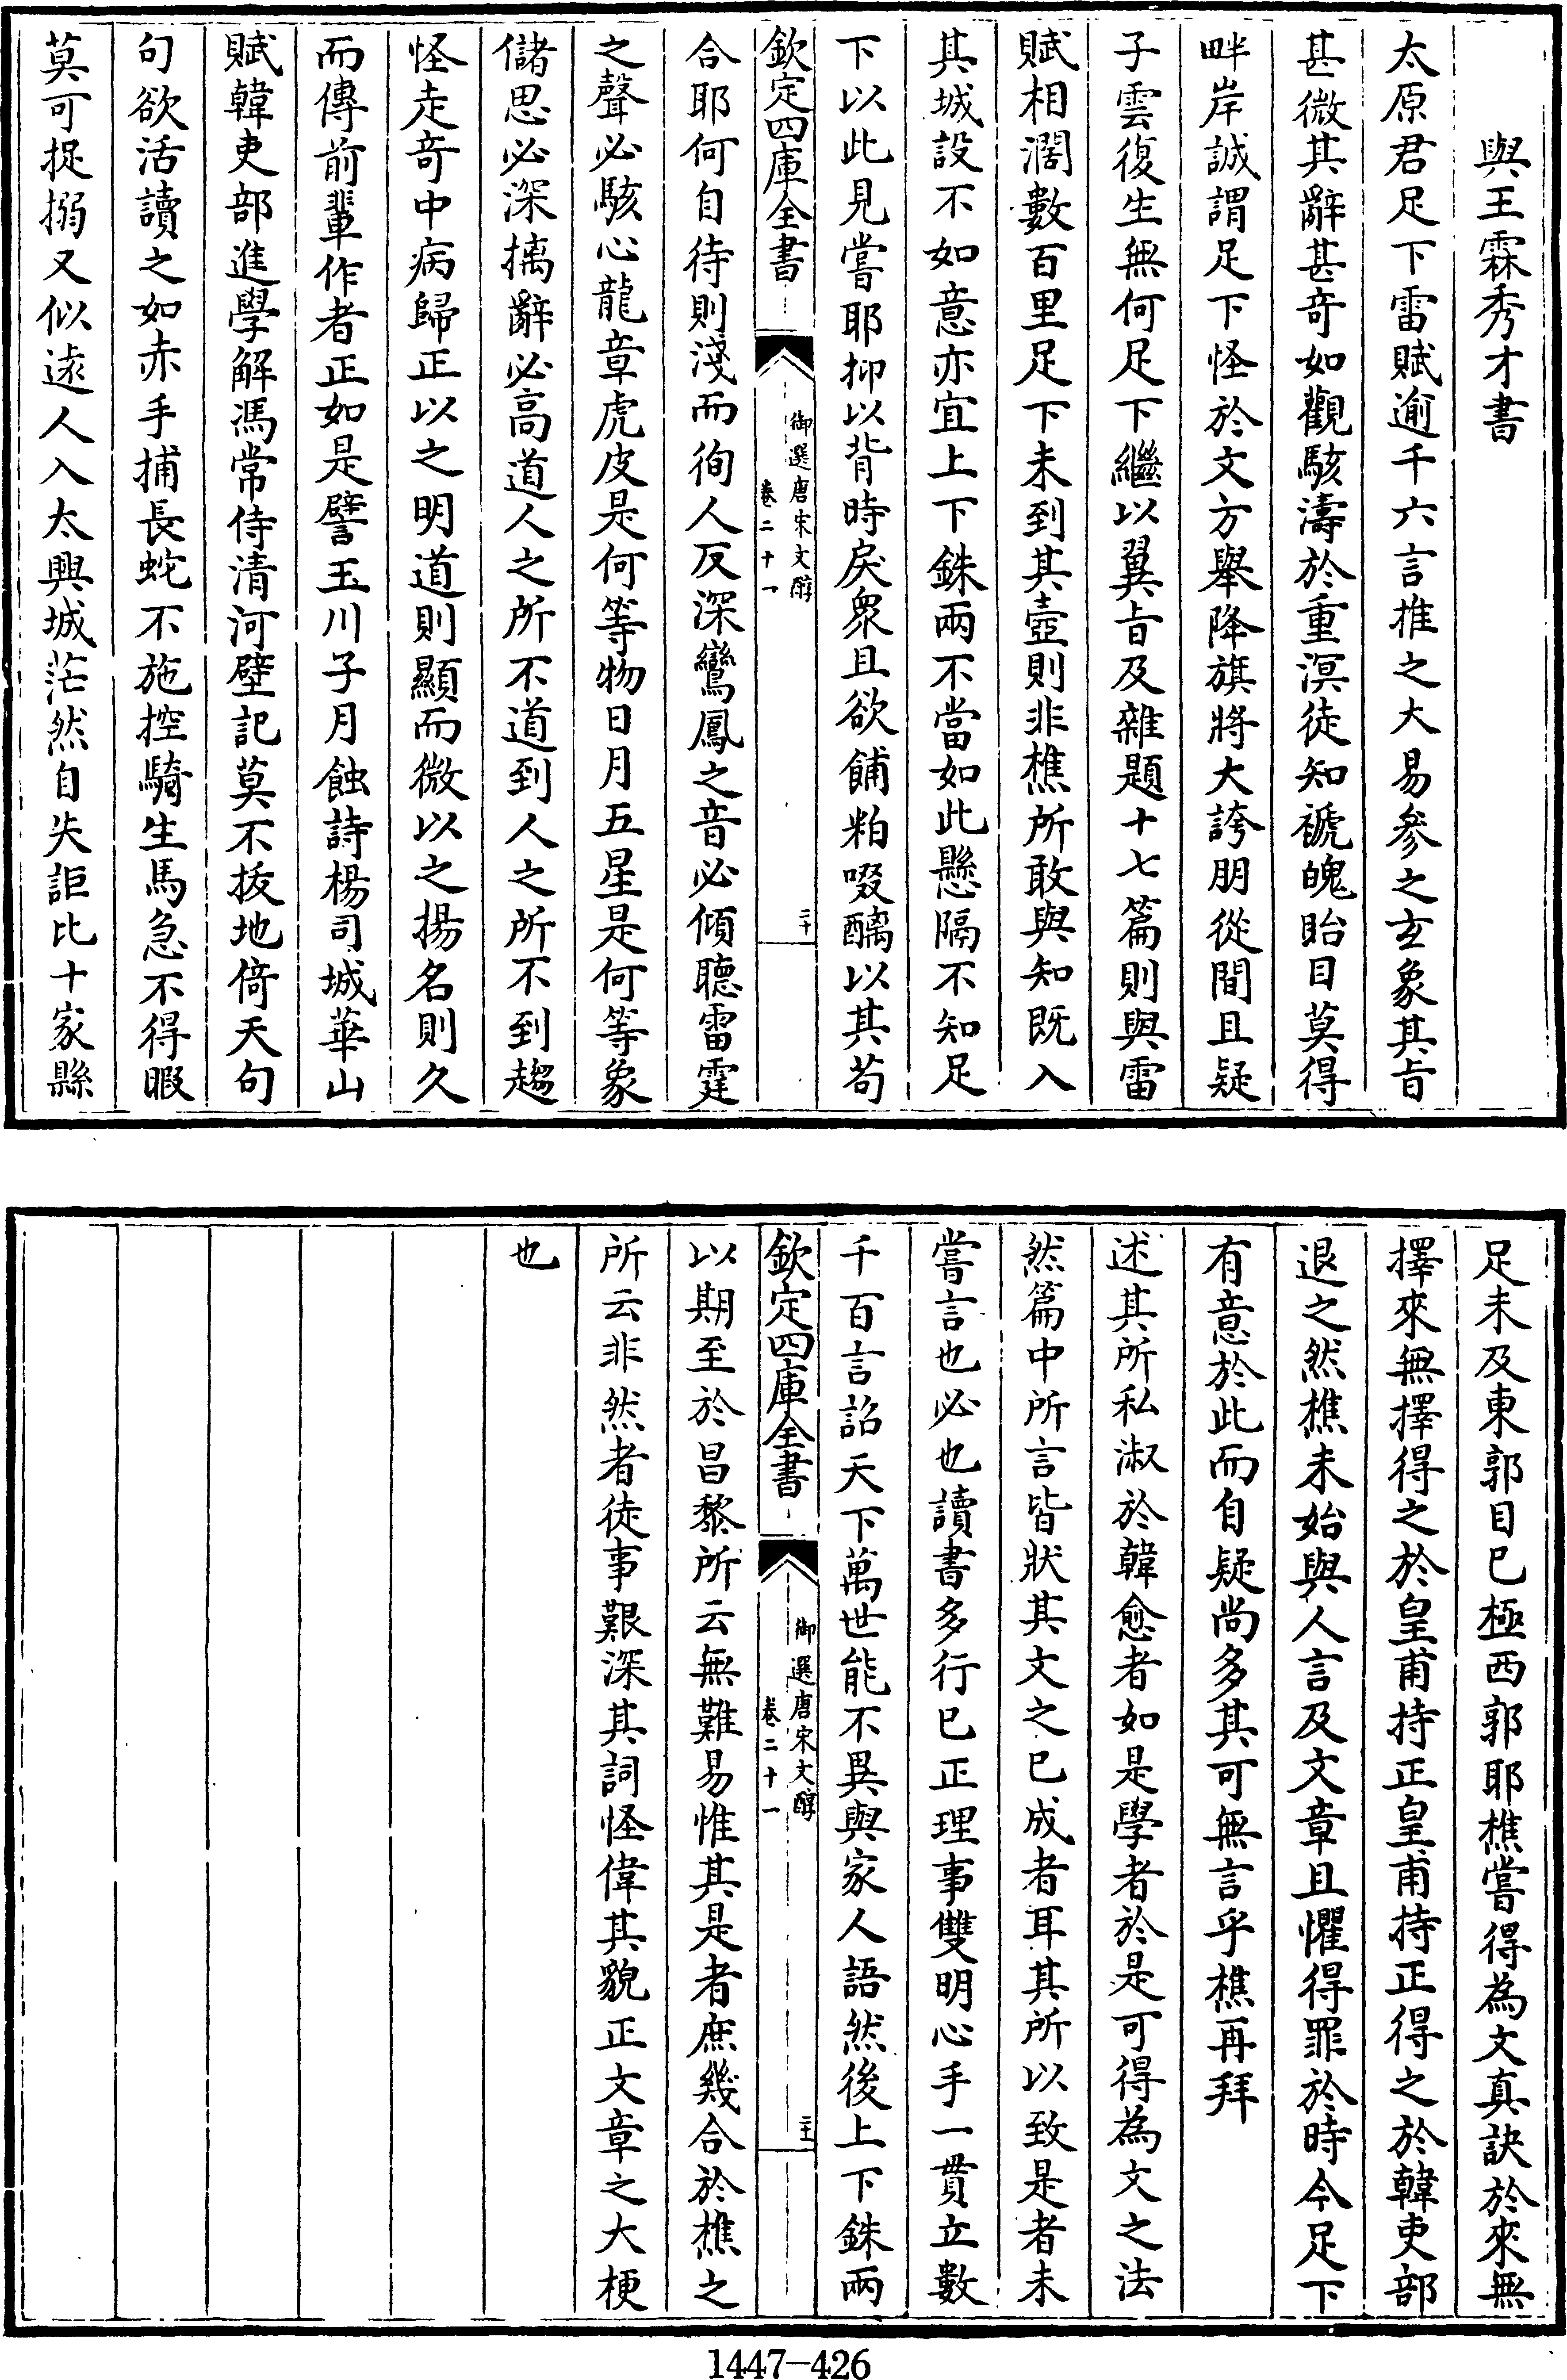 與王霖秀才書
太原君足下雷賦逾千六言推之大易參之玄象其旨
甚微其辭甚奇如觀駭濤於重溟徒知褫魄眙目莫得
畔岸誠謂足下怪於文方舉降旗將大誇朋從間且疑
子雲復生無何足下繼以翼旨及雜題十七篇則與雷
賦相濶數百里足下未到其壺則非樵所敢與知既入
其城設不如意亦宜上下銖兩不當如此懸隔不知足
下以此見嘗耶抑以背時戾衆且欲餔粕啜醨以其苟
欽定四庫全書
御選唐宋文醇
卷二十一
二十
合耶何自待則淺而徇人反深鸞鳳之音必傾聽雷霆
之聲必駭心龍章虎皮是何等物日月五星是何等象
儲思必深摛辭必高道人之所不道到人之所不到趨
怪走竒中病歸正以之明道則顯而微以之揚名則久
而傳前輩作者正如是譬玉川子月蝕詩楊司城華山
賦韓吏部進學解馮常侍清河壁記莫不拔地倚天句
句欲活讀之如赤手捕長蛇不施控騎生馬急不得暇
莫可捉搦又似逺人入太興城茫然自失詎比十家縣
足未及東郭目已極西郭耶樵嘗得為文真訣於來無
擇來無擇得之於皇甫持正皇甫持正得之於韓吏部
退之然樵未始與人言及文章且懼得罪於時今足下
有意於此而自疑尚多其可無言乎樵再拜
述其所私淑於韓愈者如是學者於是可得為文之法
然篇中所言皆狀其文之已成者耳其所以致是者未
嘗言也必也讀書多行已正理事雙明心手一貫立數
千百言詔天下萬世能不異與家人語然後上下銖兩
欽定四庫全書
御選唐宋文醇
卷二十一
二十一
以期至於昌黎所云無難易惟其是者庶幾合於樵之
所云非然者徒事艱深其詞怪偉其貌正文章之大梗
也
1447-426